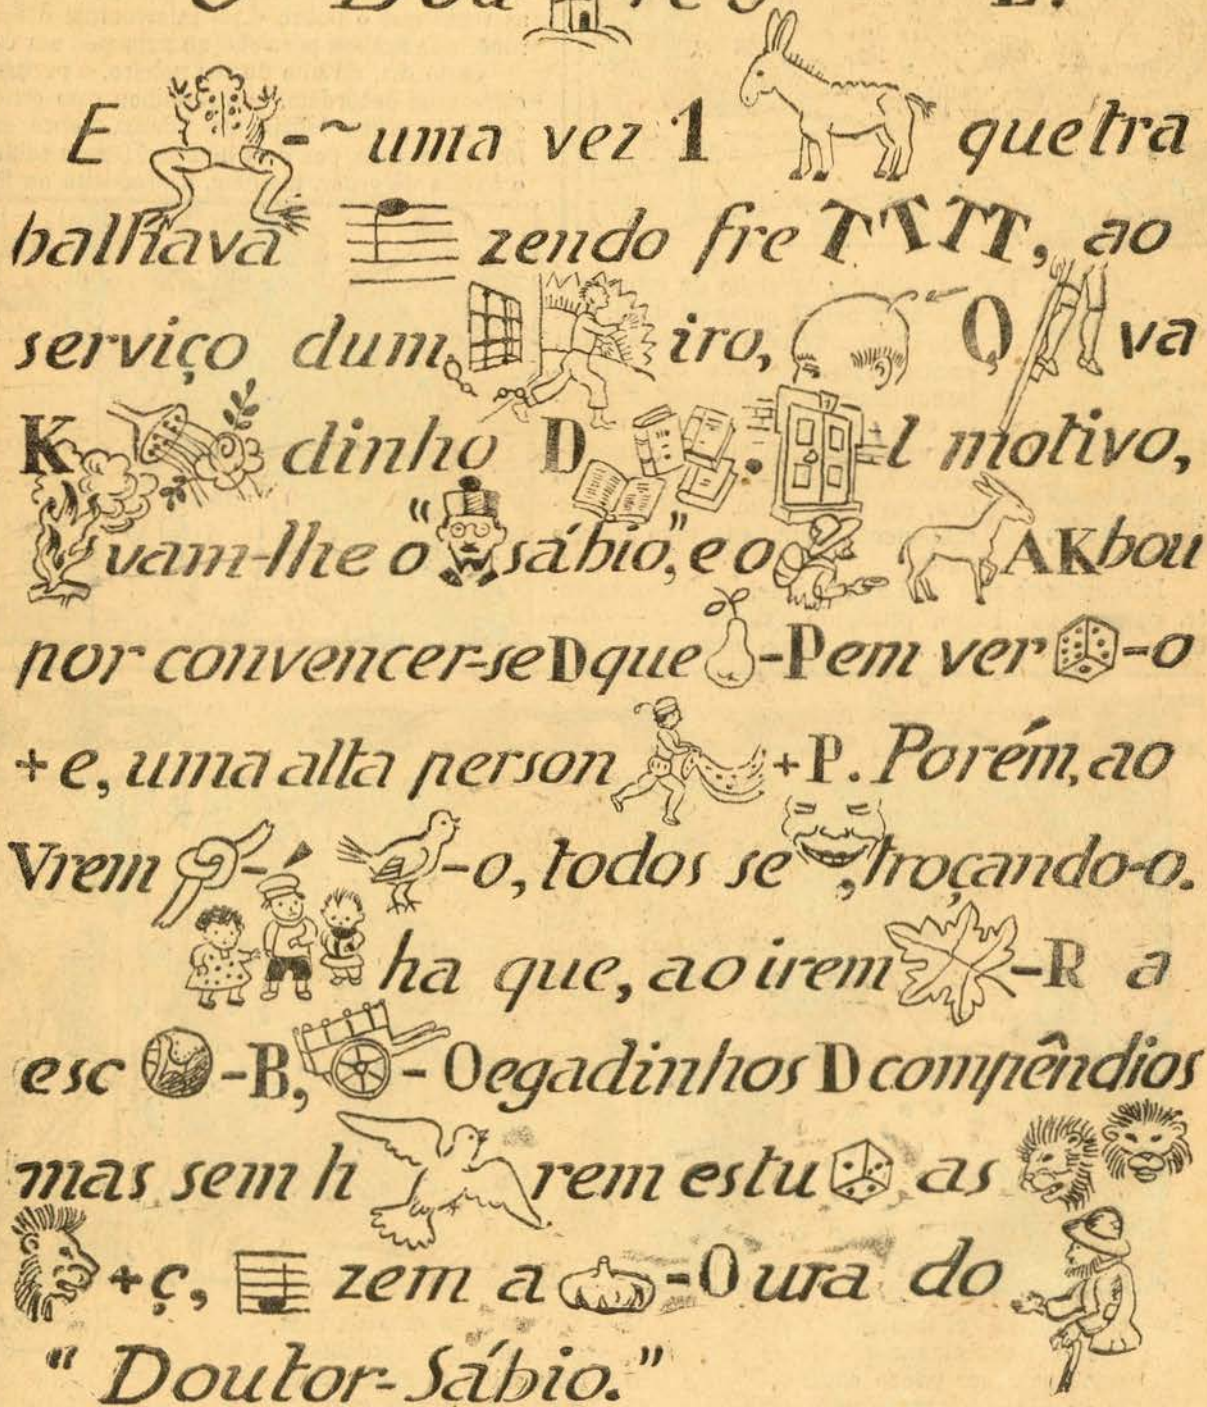 E -~uma vez 1 que tra
balhava zendo fre TTTT, ao
serviço dum iro, O va
K dinho D . l motivo,
vam-lhe o " sábio," e o AKbou
por convencer-se D que -P em ver -o
+e, uma alta person +P. Porém, ao
Vrem -´ -o, todos se , troçando-o.
ha que, ao irem -R a
esc -B, -Oegadinhos D compêndios
mas sem h rem estu as
+ç, zem a -Oura do
" Doutor-Sábio."